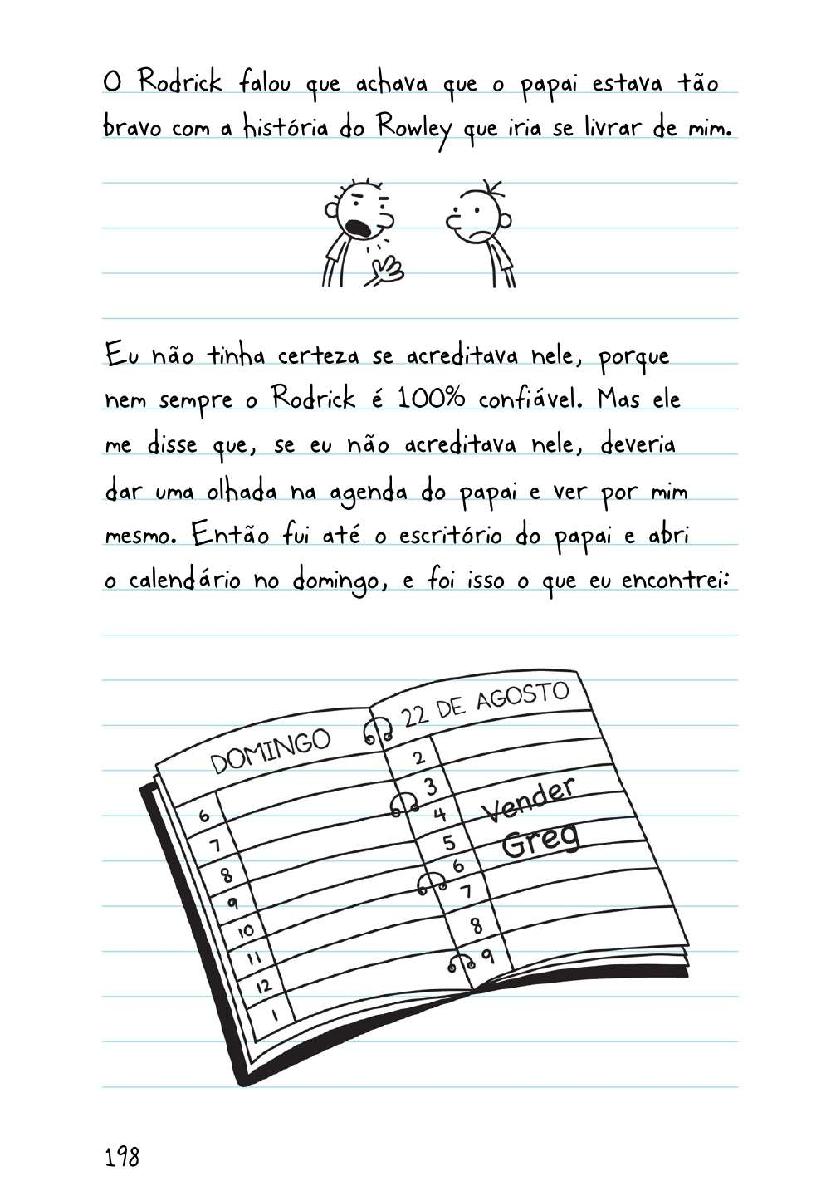 O Rodrick falou que achava que o papai estava tão
bravo com a história do Rowley que iria se livrar de mim.
Eu não tinha certeza se acreditava nele, porque
nem sempre o Rodrick é 100% confiável. Mas ele
me disse que, se eu não acreditava nele, deveria
dar uma olhada na agenda do papai e ver por mim
mesmo. Então fui até o escritório do papai e abri
o calendário no domingo, e foi isso o que eu encontrei:
DOMINGO
6
7
8
9
10
11
12
1
22 DE AGOSTO
2
3
4
5
6
7
8
9
Vender
Greg
198